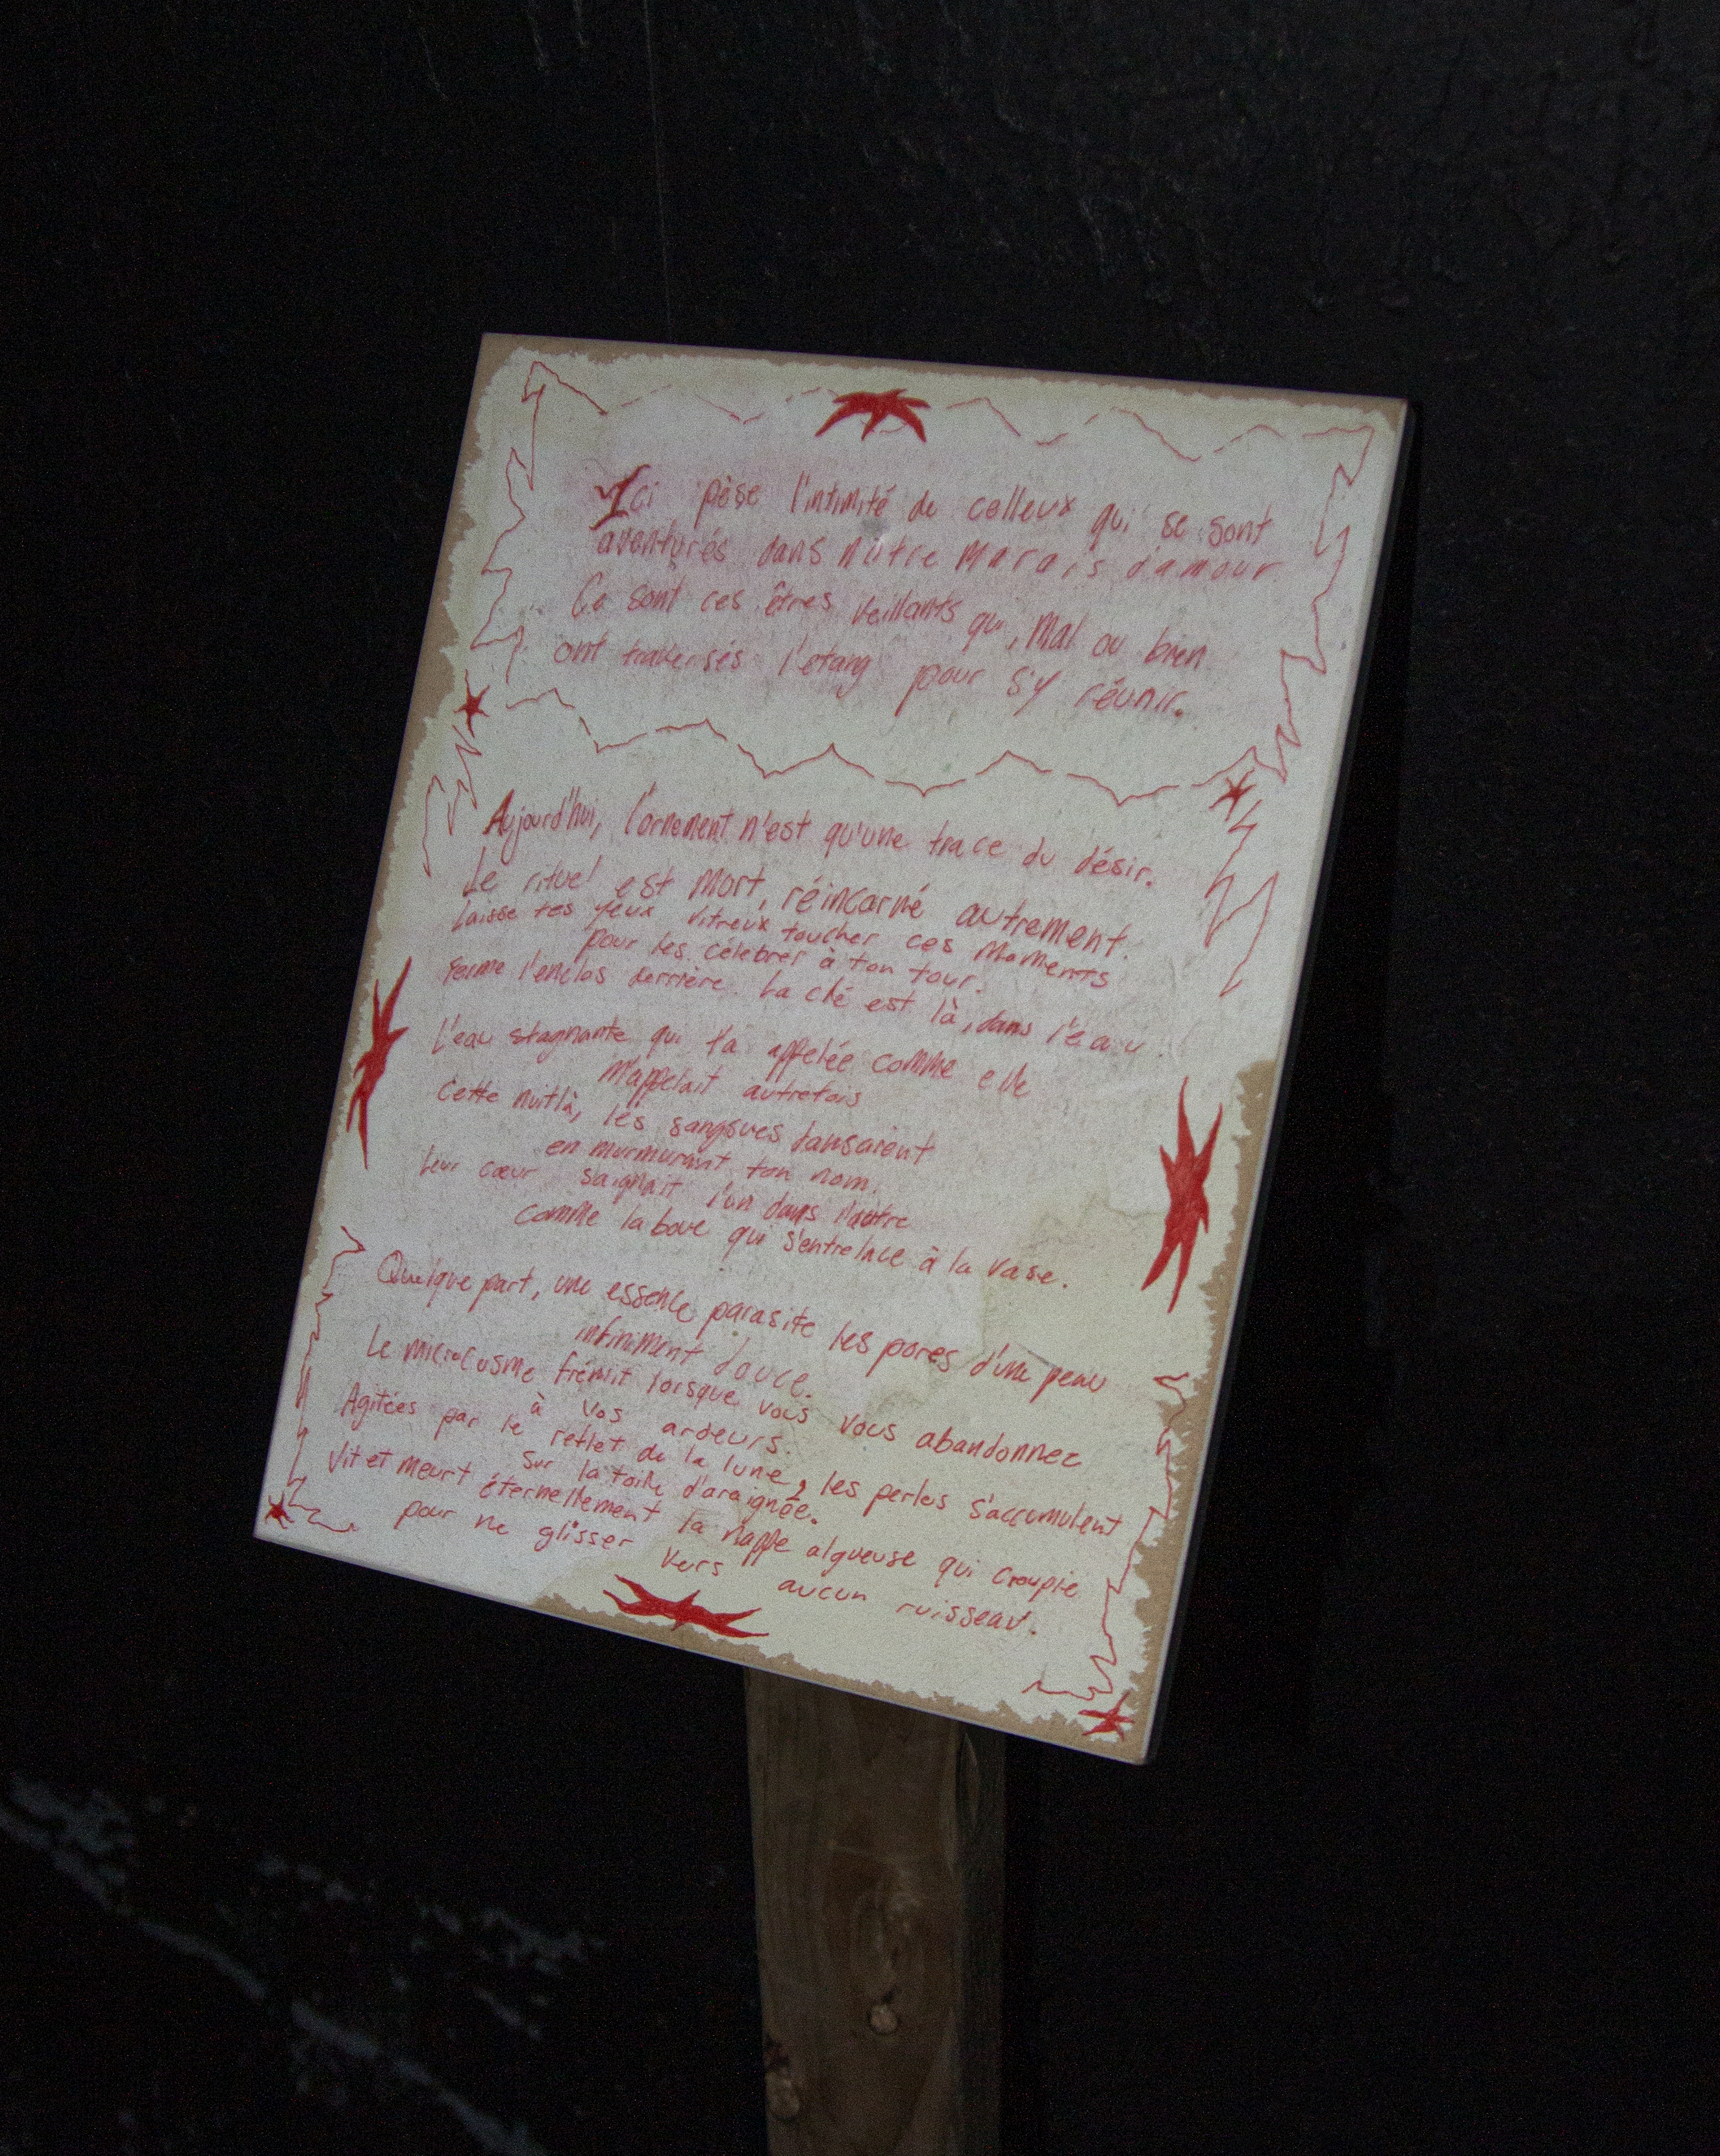 Ici pèse l'intimité de celleux qui se sont
aventurés dans nôtre marais d'amour
Ce sont ces êtres veillants qui, mal ou bien
ont traversés l'étang pour s'y réunir.
Aujourd'hui, l'ornement n'est qu'une trace du désir.
Le rituel est mort, réincarné autrement.
Laisse tes yeux vitreux toucher ces moments
pour les célébrer à ton tour.
Ferme l'enclos derrière. La clé est là, dans l'eau.
L'eau stagnante qui t'a appelée comme elle
m'appelait autrefois
Cette nuit là, les sangsues dansaient
en murmurant ton nom.
Leur cœur saignait l'un dans l'autre
comme la boue qui s'entrelace à la vase.
Quelque part, une essence parasite les pores d'une peau
infiniment douce.
Le microcosme frémit lorsque vous vous abandonnez
à vos ardeurs.
Agitées par le reflet de la lune, les perles s'accumulent
sur la toile d'araignée.
Vit et meurt éternellement la nappe algueuse qui croupie
pour ne glisser vers aucun ruisseau.